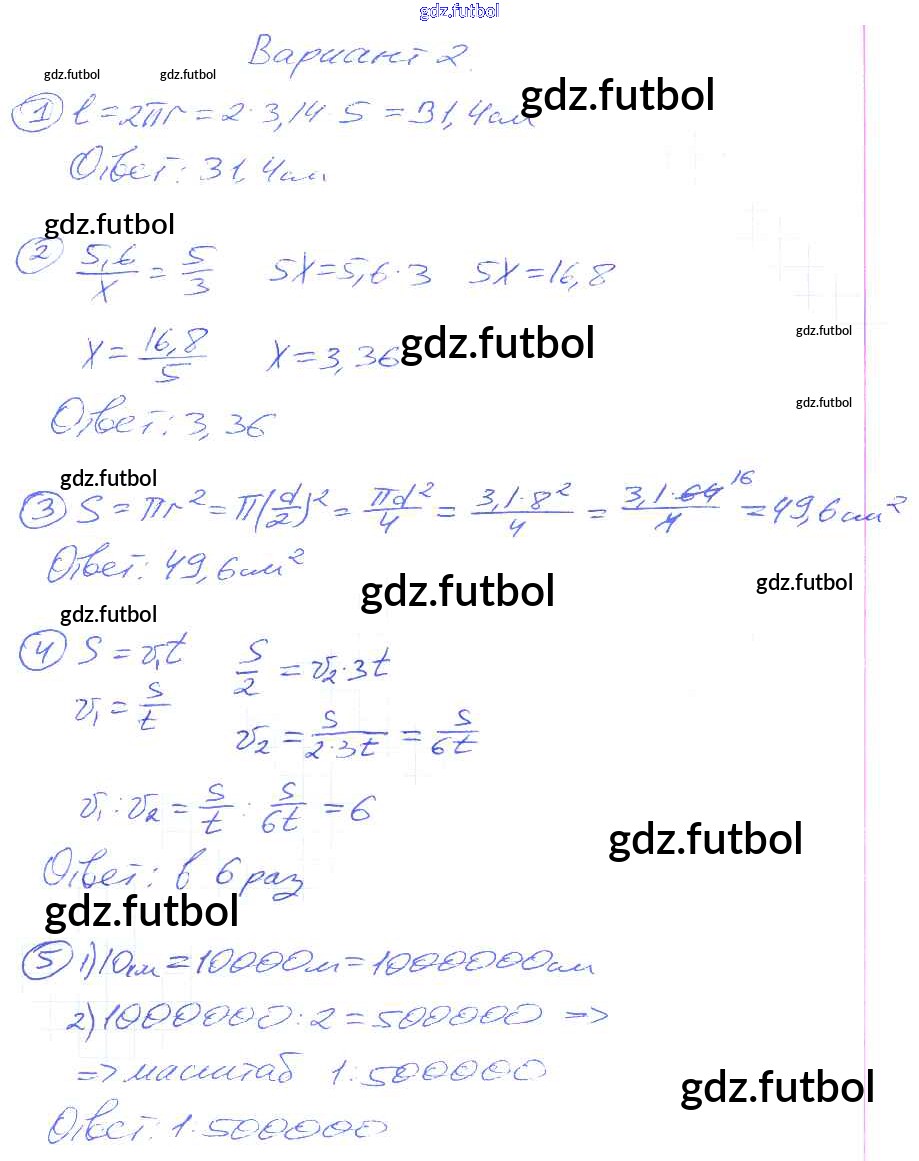 gdz.futbol
Вариант 2.
gdz.futbol gdz.futbol gdz.futbol
① l = 2πr = 2 · 3,14 · 5 = 31,4 см
Ответ: 31,4 см
gdz.futbol
② 5,6/x = 5/3 5x = 5,6 · 3 5x = 16,8
gdz.futbol
x = 16,8/5 x = 3,36 gdz.futbol
gdz.futbol
Ответ: 3,36
gdz.futbol
③ S = πr² = π(d/2)² = πd²/4 = 3,1·8²/4 = 3,1·64/4 16 = 49,6 см²
Ответ: 49,6 см²
gdz.futbol gdz.futbol
gdz.futbol
④ S = v₁t S/2 = v₂·3t
v₁ = S/t v₂ = S/2·3t = S/6t
v₁ : v₂ = S/t : S/6t = 6
gdz.futbol
Ответ: в 6 раз
gdz.futbol
⑤ 1) 10км = 10000м = 1000000см
2) 1000000 : 2 = 500000 =>
=> масштаб 1:500000
gdz.futbol
Ответ: 1:500000